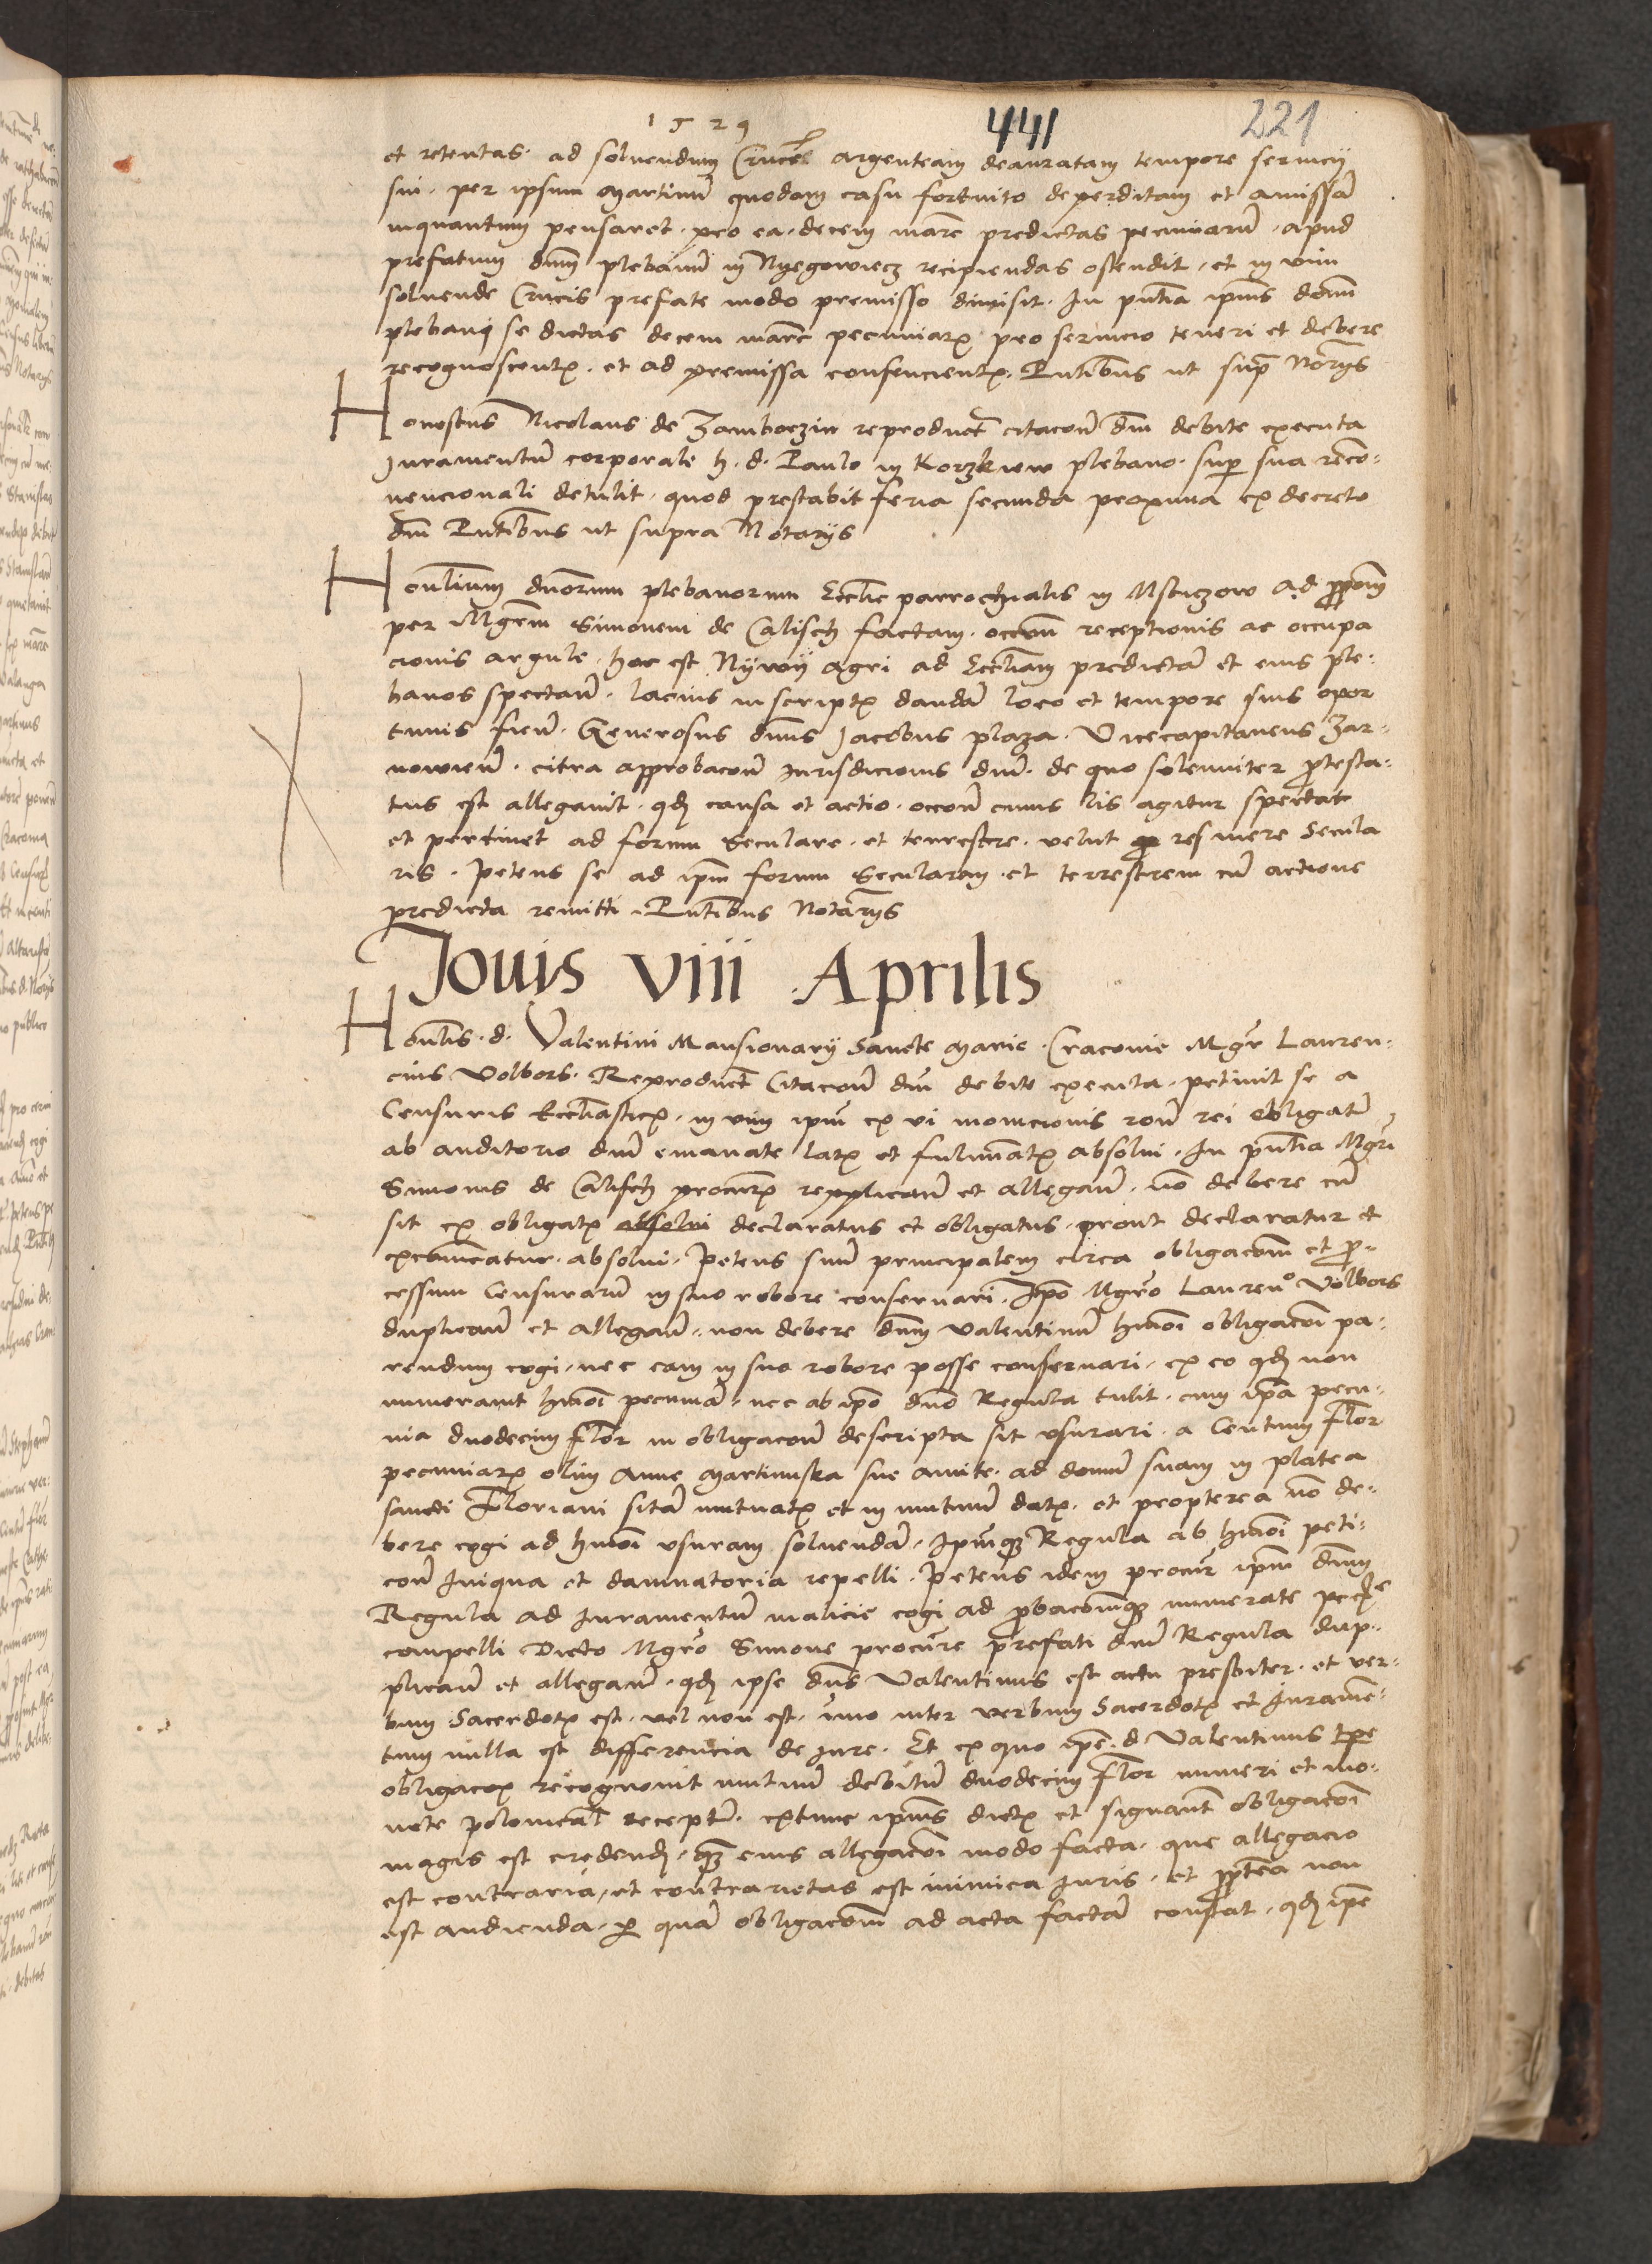 1529 441 221
et retentas. ad soluendum Crucem argenteam deauratam tempore seruicij
sui. per ipsum Martinū quodam casu fortuito deperditam et amissā
inquantum pensaret. pro ea. decem marc predictas pecuniarū. apud
prefatum dnm plebanū in Nyegowiecz recipiendas ostendit. et in vim
soluende Crucis prefate modo premisso dimisit. In pntia ipius domi
plebani se dictas decem marc pecuniarꝝ pro seruicio teneri et debere
recognoscentꝝ. et ad premissa consencientꝝ. Pntibus ut supra Notarijs
Honestus Nicolaus de Zamboczin reproduct citacoe dni debite executa
Juramentū corporale h. d. Paulo in Korzkiew plebano. super sua reco=
nuencionali detulit. quod prestabit feria secunda proxima ex decreto
dni Pntibus ut supra Notarijs
Honlium dnorum plebanorum Ecclie parrochialis in Msciczow ad ppoem
per Mgrm Simonem de Calisch factam. occoe receptionis ac occupa
cionis argule. hoc est Nywy agri ad Eccliam predictā et eius ple=
banos spectan. lacius in scriptꝝ dandā loco et tempore suis opor
tunis fien. Generosus dnus Jacobus plaza. Vicecapitaneus Zar=
nowien. citra approbacoe Jurisdicionis dni. de quo solenniter protesta=
tus est allegauit. qd causa et actio. occoe cuius lis agitur spectat
et pertinet ad forum seculare. et terrestre. velut res mere Secula
ris. Petens se ad ipm forum Secularem et terrestrem cū actione
predicta remitti. Pntibus Notarijs
Jouis viii Aprilis
Honlis. d. Valentini Mansionarij Sancte Marie. Cracouie Mgr Lauren=
cius Volbors. Reproduct Citacoe dni debite executa. petiuit se a
Censuris Ecclasticꝝ. in vim ipm ex vi monicionis roe rei obligate
ab auditorio dni emanate latꝝ et fulminatꝝ absolui. In pntia Mgri
Simonis de Calisch procuris repplican et allegan. no debere cū
sit ex obligatꝝ absolui declaratus et obligatus. prout declaratur et
excoicatur. absolui. Petens suū principalem circa obligacoem et pro=
cessum Censurarū in suo robore conseruari. Ipo Mgro Laureno Volbors
duplican et allegan. non debere dnm Valentinū huiusmoi obligacoi pa=
rendum cogi. nec eam in suo robore posse conseruari. ex eo qd non
numerauit huiusmoi pecuniā. nec ab ipo dno Regula tulit. cum ipa pecu=
nia duodecim flor in obligacoe descripta sit usurari. a Centum flor
pecuniarꝝ olim Anne Martinuska sue amite. ad domū suam in platea
sancti Floriani sitā mutuatꝝ et in mutuū datꝝ. et propterea no de=
bere cogi ad huiusmoi usuram soluendā. Ipmqꝫ Regula ab huiusmoi peti=
coe Iniqua et damnatoria repelli. Petens idem procur ipm dnm
Regula ad Juramentū malicie cogi ad probacoemqꝫ numerate pecue
compelli Dicto Mgro Simone procure prefati dni Regula dup=
plican et allegan. qd ipse dns Valentinus est actu presbiter. et ver=
bum Sacerdotꝝ est. vel non est. imo inter verbum Sacerdotꝝ et Jurame=
tum nulla est differencia de jure. Et ex quo ipe. d Valentinus tpe
obligacoꝝ recognouit mutuū debitū duodecim flor numeri et mo=
nete polonicał receptꝝ. extunc ipius dictꝝ et signant obligacoi
magis est credend. qꝫ eius allegacoi modo facta. que allegacio
est contraria. et contrarietas est inimica Juris. et proptea non
est audienda. per quā obligacoem ad acta factā constat. qd ipe